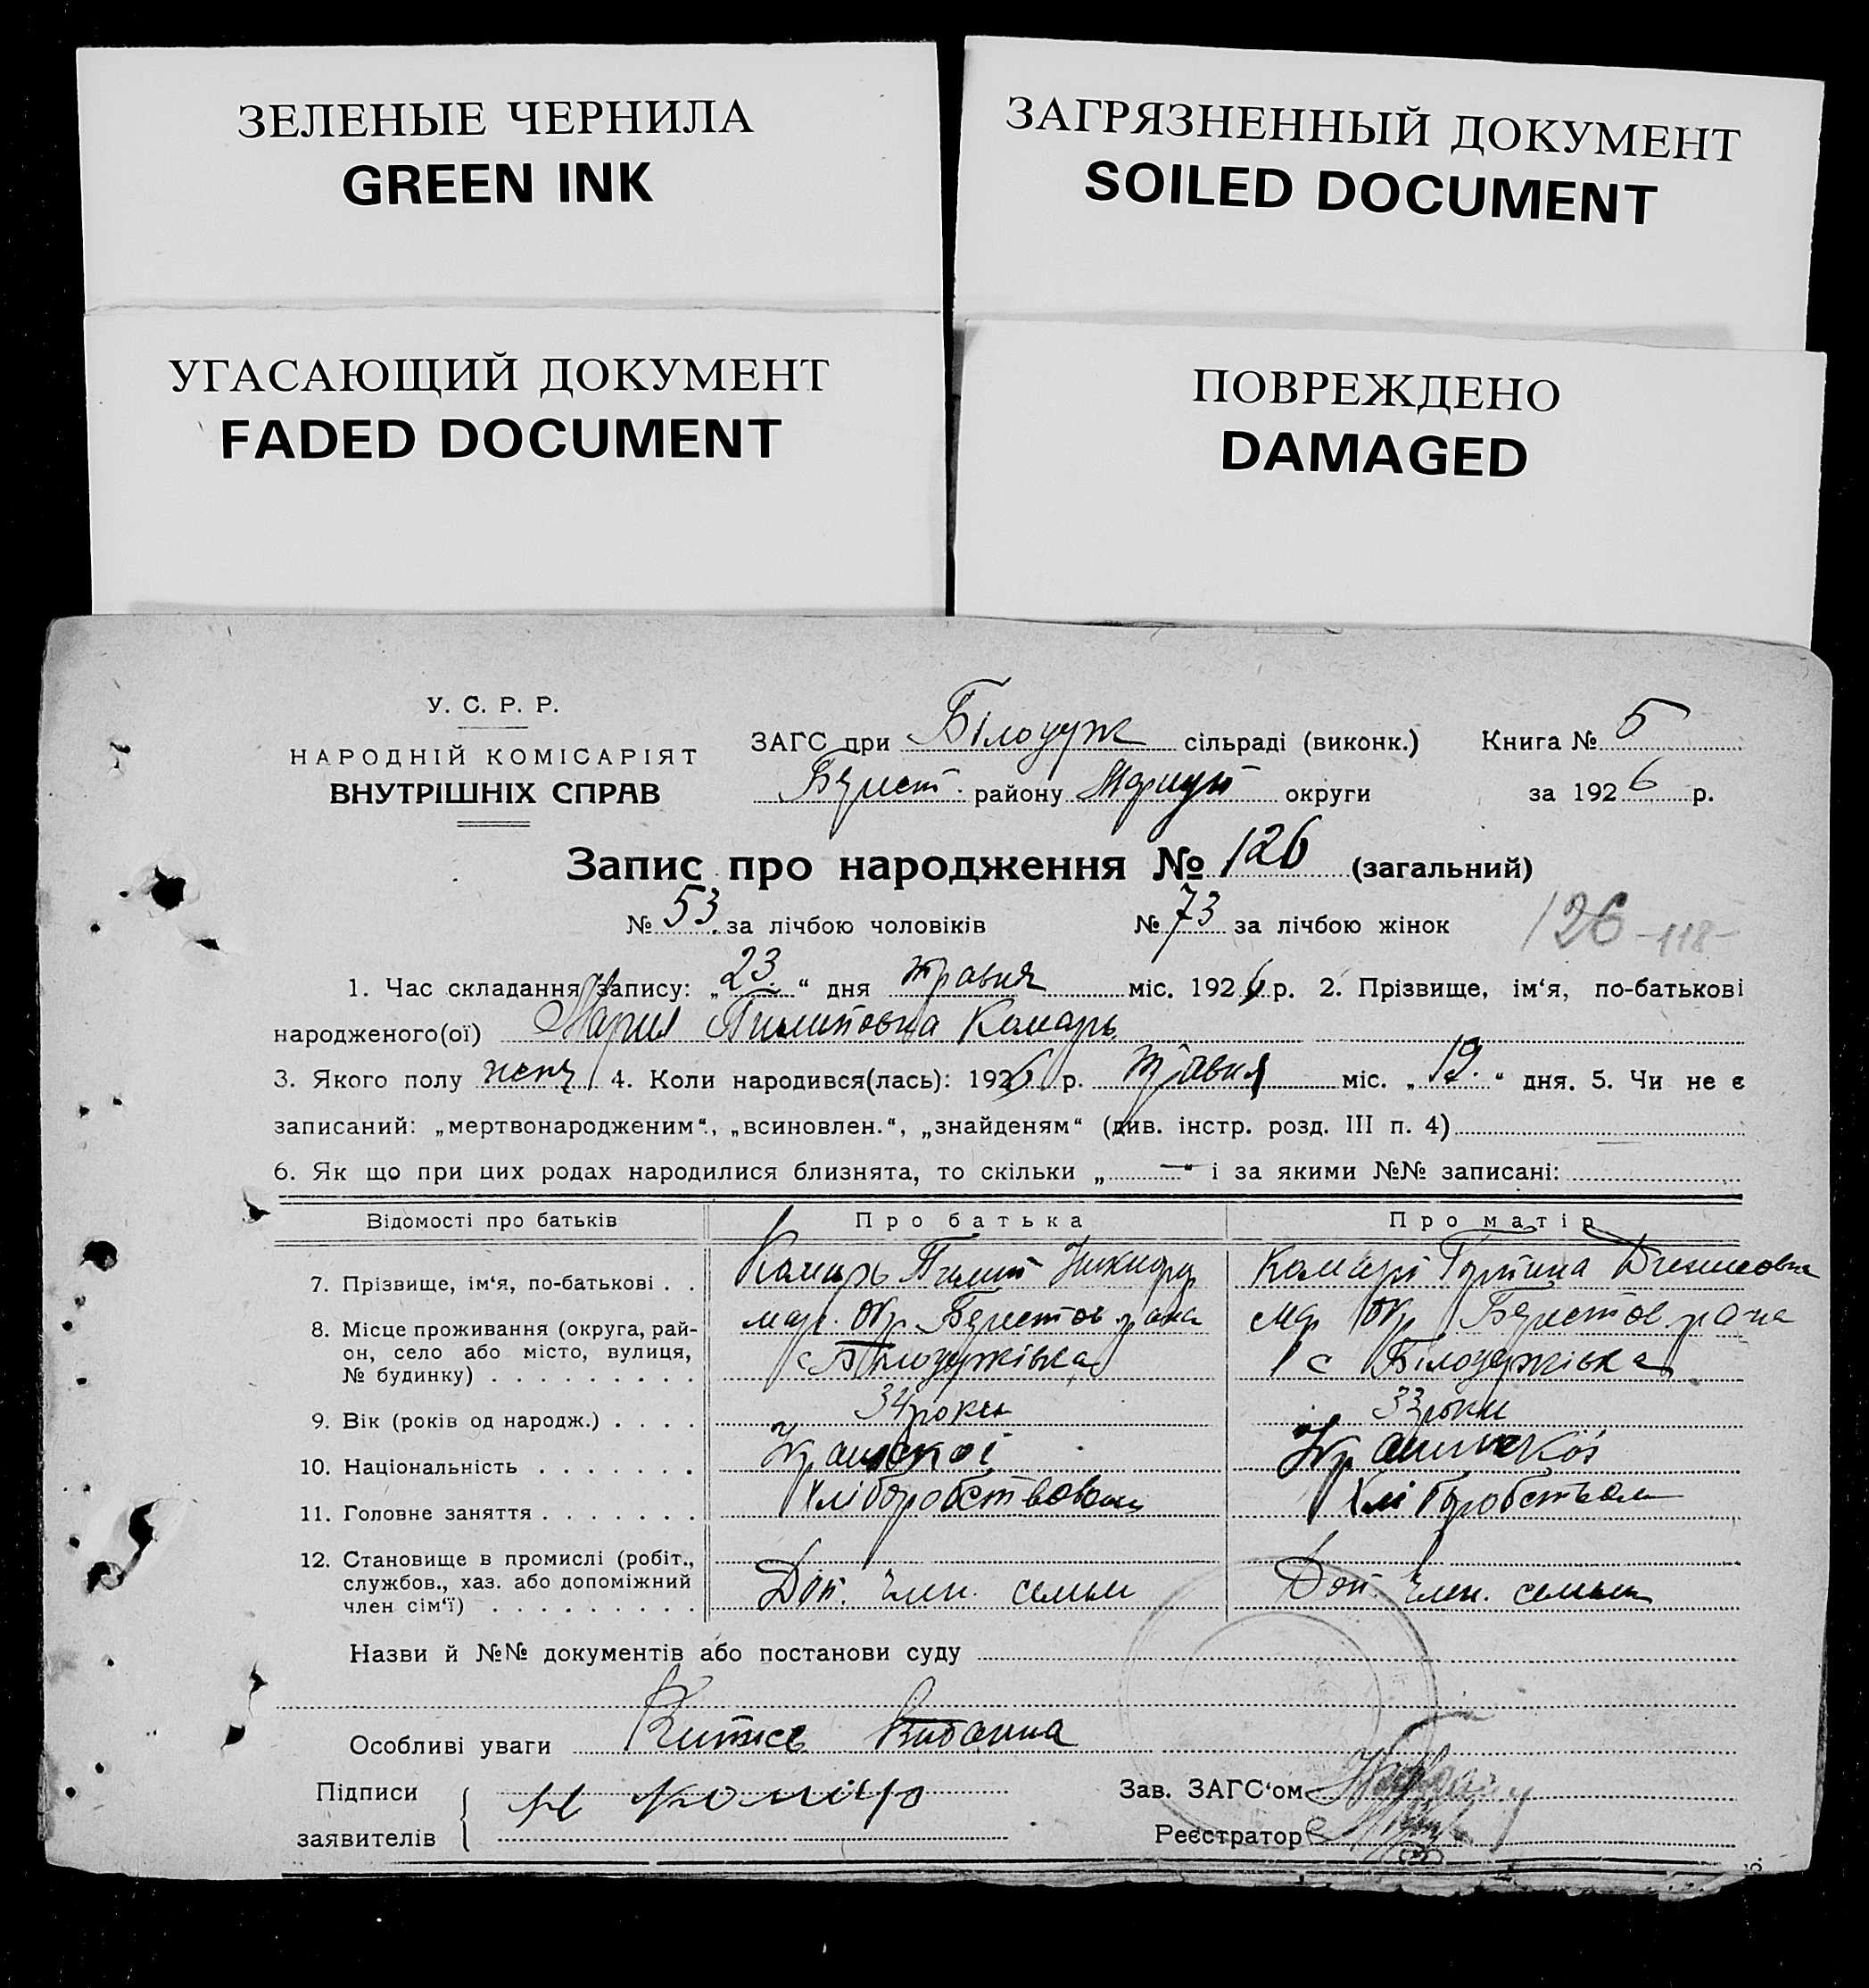 ЗЕЛЕНЫЕ ЧЕРНИЛА
GREEN INK
ЗАГРЯЗНЕННЫЙ ДОКУМЕНТ
SOILED DOCUMENT
УГАСАЮЩИЙ ДОКУМЕНТ
FADED DOCUMENT
ПОВРЕЖДЕНО
DAMAGED
У. С. Р. Р.
НАРОДНІЙ КОМІСАРІЯТ
ВНУТРІШНІХ СПРАВ
ЗАГС при сільраді (виконк.) Книга № 5
Берест. району округи за 1926 р.
Запис про народження № 126 (загальний)
№ 53. за лічбою чоловіків № 73 за лічбою жінок
126 -118-
1. Час складання запису: „23.“ дня травня міс. 1926 р. 2. Прізвище, ім‘я, по-батькові
народженого(ої) Мария Пилиповна Комарь
3. Якого полу жень 4. Коли народився(лась): 1926 р. травня міс. „19.“ дня. 5. Чи не є
записаний: „мертвонародженим“., „всиновлен.“, „знайденям“ (див. інстр. розд. III п. 4)
6. Як що при цих родах народилися близнята, то скільки „—“ і за якими №№ записані:
Відомості про батьків Про батька Про матір
7. Прізвище, ім‘я, по-батькові . . Комарь Пилип Комарь
8. Місце проживання (округа, рай-
он, село або місто, вулиця,
№ будинку) . . . . . . . . .
мар. окр. Берестов. рона
Мар окр Берестов рона
с с
9. Вік (років од народж.) . . . . 34 роки 33 роки
10. Національність . . . . . . .
11. Головне заняття . . . . . . . Хліборобством
12. Становище в промислі (робіт.,
службов., хаз. або допоміжний
член сім‘ї) . . . . . . . . .
Доп. член. семьи Доп. член. семьи
Назви й №№ документів або постанови суду
Особливі уваги
Підписи
заявителів
Зав. ЗАГС‘ом
Реєстратор